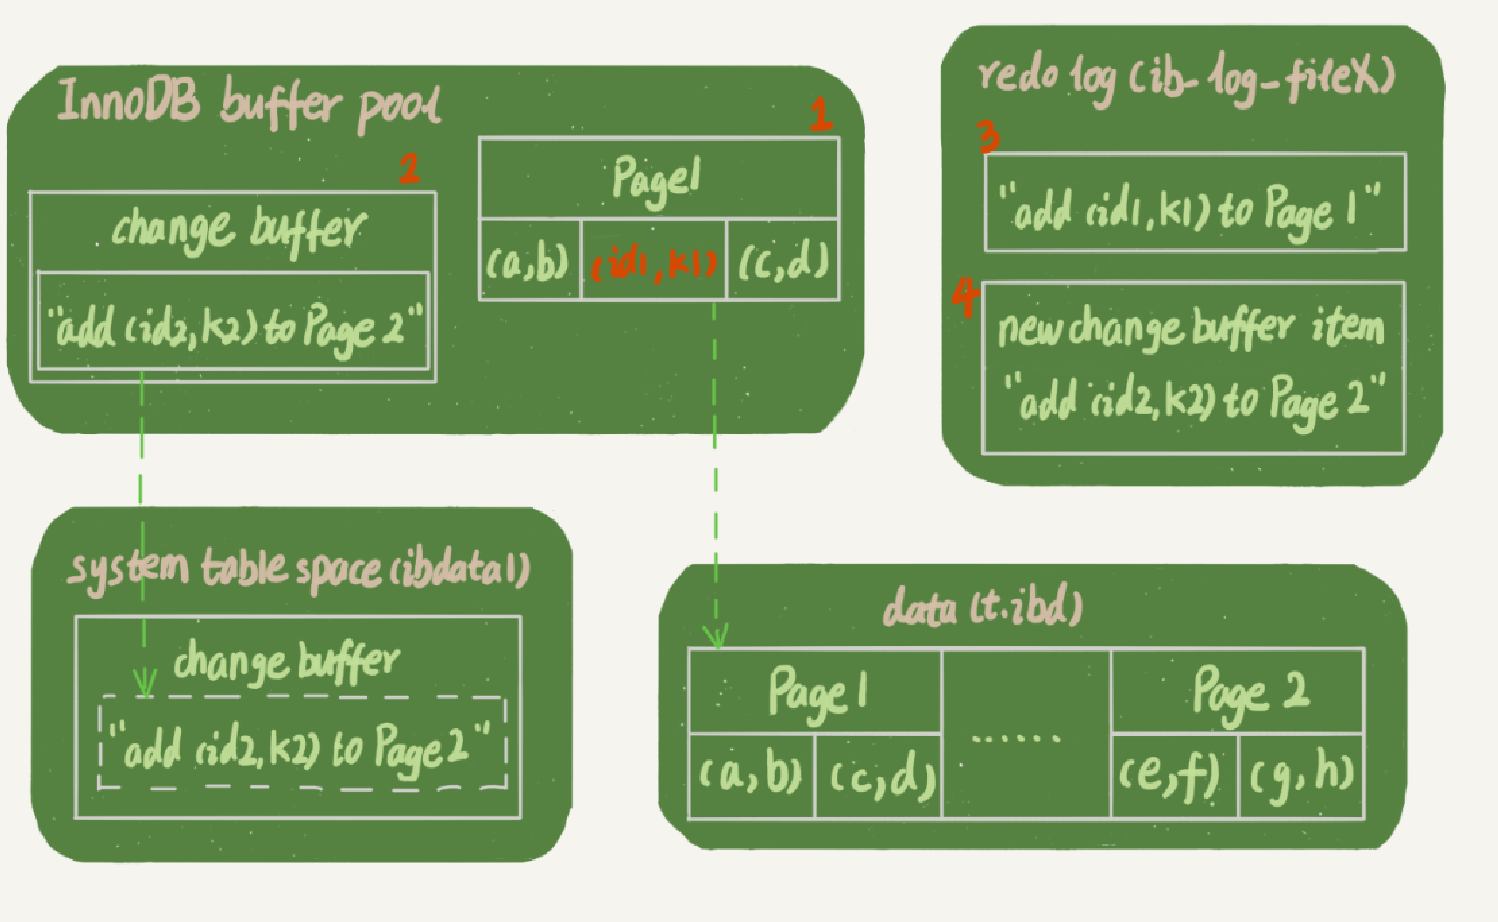 InnoDB buffer pool
1
2
Page1
(a,b) (id1,k1) (c,d)
change buffer
"add (id2,k2) to Page 2"
redo log (ib_log_fileX)
3
"add (id1,k1) to Page 1"
4
new change buffer item
"add (id2,k2) to Page 2"
system table space (ibdata1)
change buffer
"add (id2,k2) to Page 2"
data (t.ibd)
Page1 ...... Page 2
(a,b) (c,d) (e,f) (g,h)